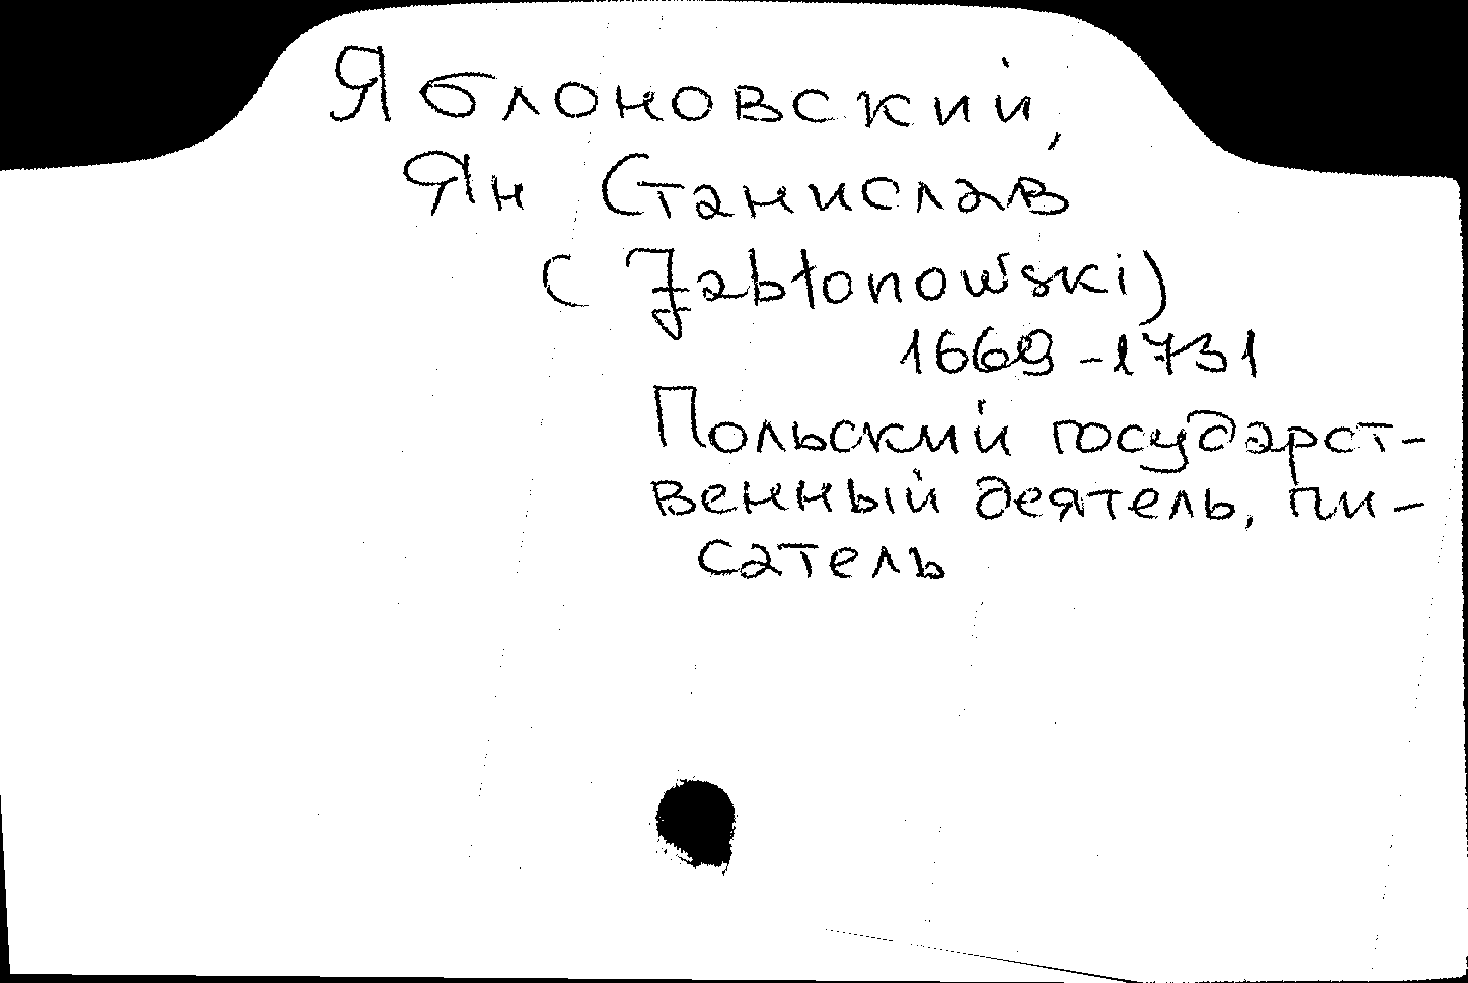 Яблоновский,
Ян Станислав
(Jabłonowski)
1669-1731
Польский государст-
венный деятель, пи-
сатель